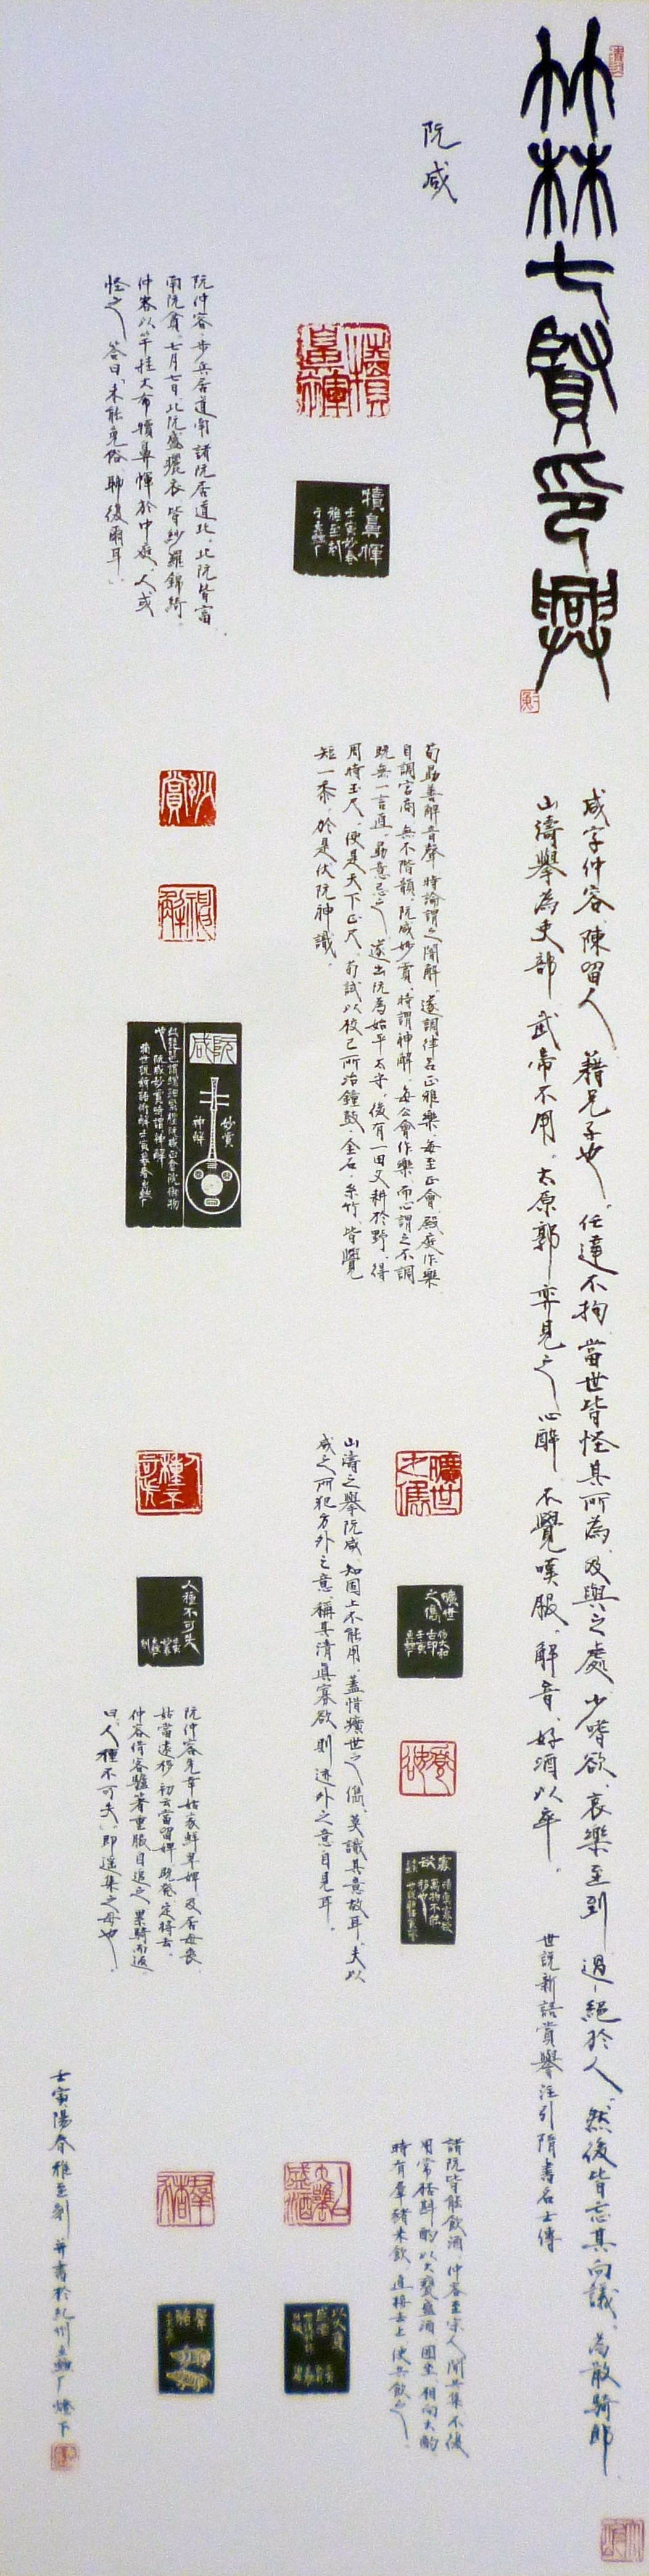 竹林七賢印興
咸字仲容陳留人籍兄子也任達不拘當世皆怪其所為及與之處少嗜欲哀樂至到過絕於人然後皆忘其向議為散騎郎
山濤舉為吏部武帝不用太原郭弈見之心醉不覺嘆服解音好酒以卒
世說新語賞譽注引隋書名士傳
阮咸
犢鼻褌
壬寅妙春
雅至刻
阮仲容步兵居道南諸阮居道北北阮皆富
南阮貧七月七日北阮盛曬衣皆紗羅錦綺
仲容以竿挂大布犢鼻褌於中庭人或
怪之答曰未能免俗聊復爾耳
荀勗善解音聲時論謂之闇解遂調律呂正雅樂每至正會殿庭作樂
自調宮商無不階韻阮咸妙賞時謂神解每公會作樂而心謂之不調
既無一言直勗意忌之遂出阮為始平太守後有一田父耕於野得
周時玉尺便是天下正尺荀試以校己所治鐘鼓金石糸竹皆覺
短一黍於是伏阮神識
妙賞
神解
阮咸
妙賞
神解
阮咸妙賞時謂神解
曠世之儁
曠世
之儁
寡欲
山濤之舉阮咸知固上不能用蓋惜曠世之儁莫識其意故耳夫以
咸之所犯方外之意稱其清真寡欲則迹外之意自見耳
人種不可失
人種不可失
阮仲容先幸姑家鮮卑婢及居母喪
姑當遠移初云當留婢既發定將去
仲容借客驢著重服自追之累騎而返
曰人種不可失即遙集之母也
諸阮皆能飲酒仲容至宗人閒共集不復
用常桮斟酌以大甕盛酒圍坐相向大酌
時有羣豬來飲直接去上便共飲之
以大甕盛酒
羣豬
壬寅陽春雅至刻并書於杭州